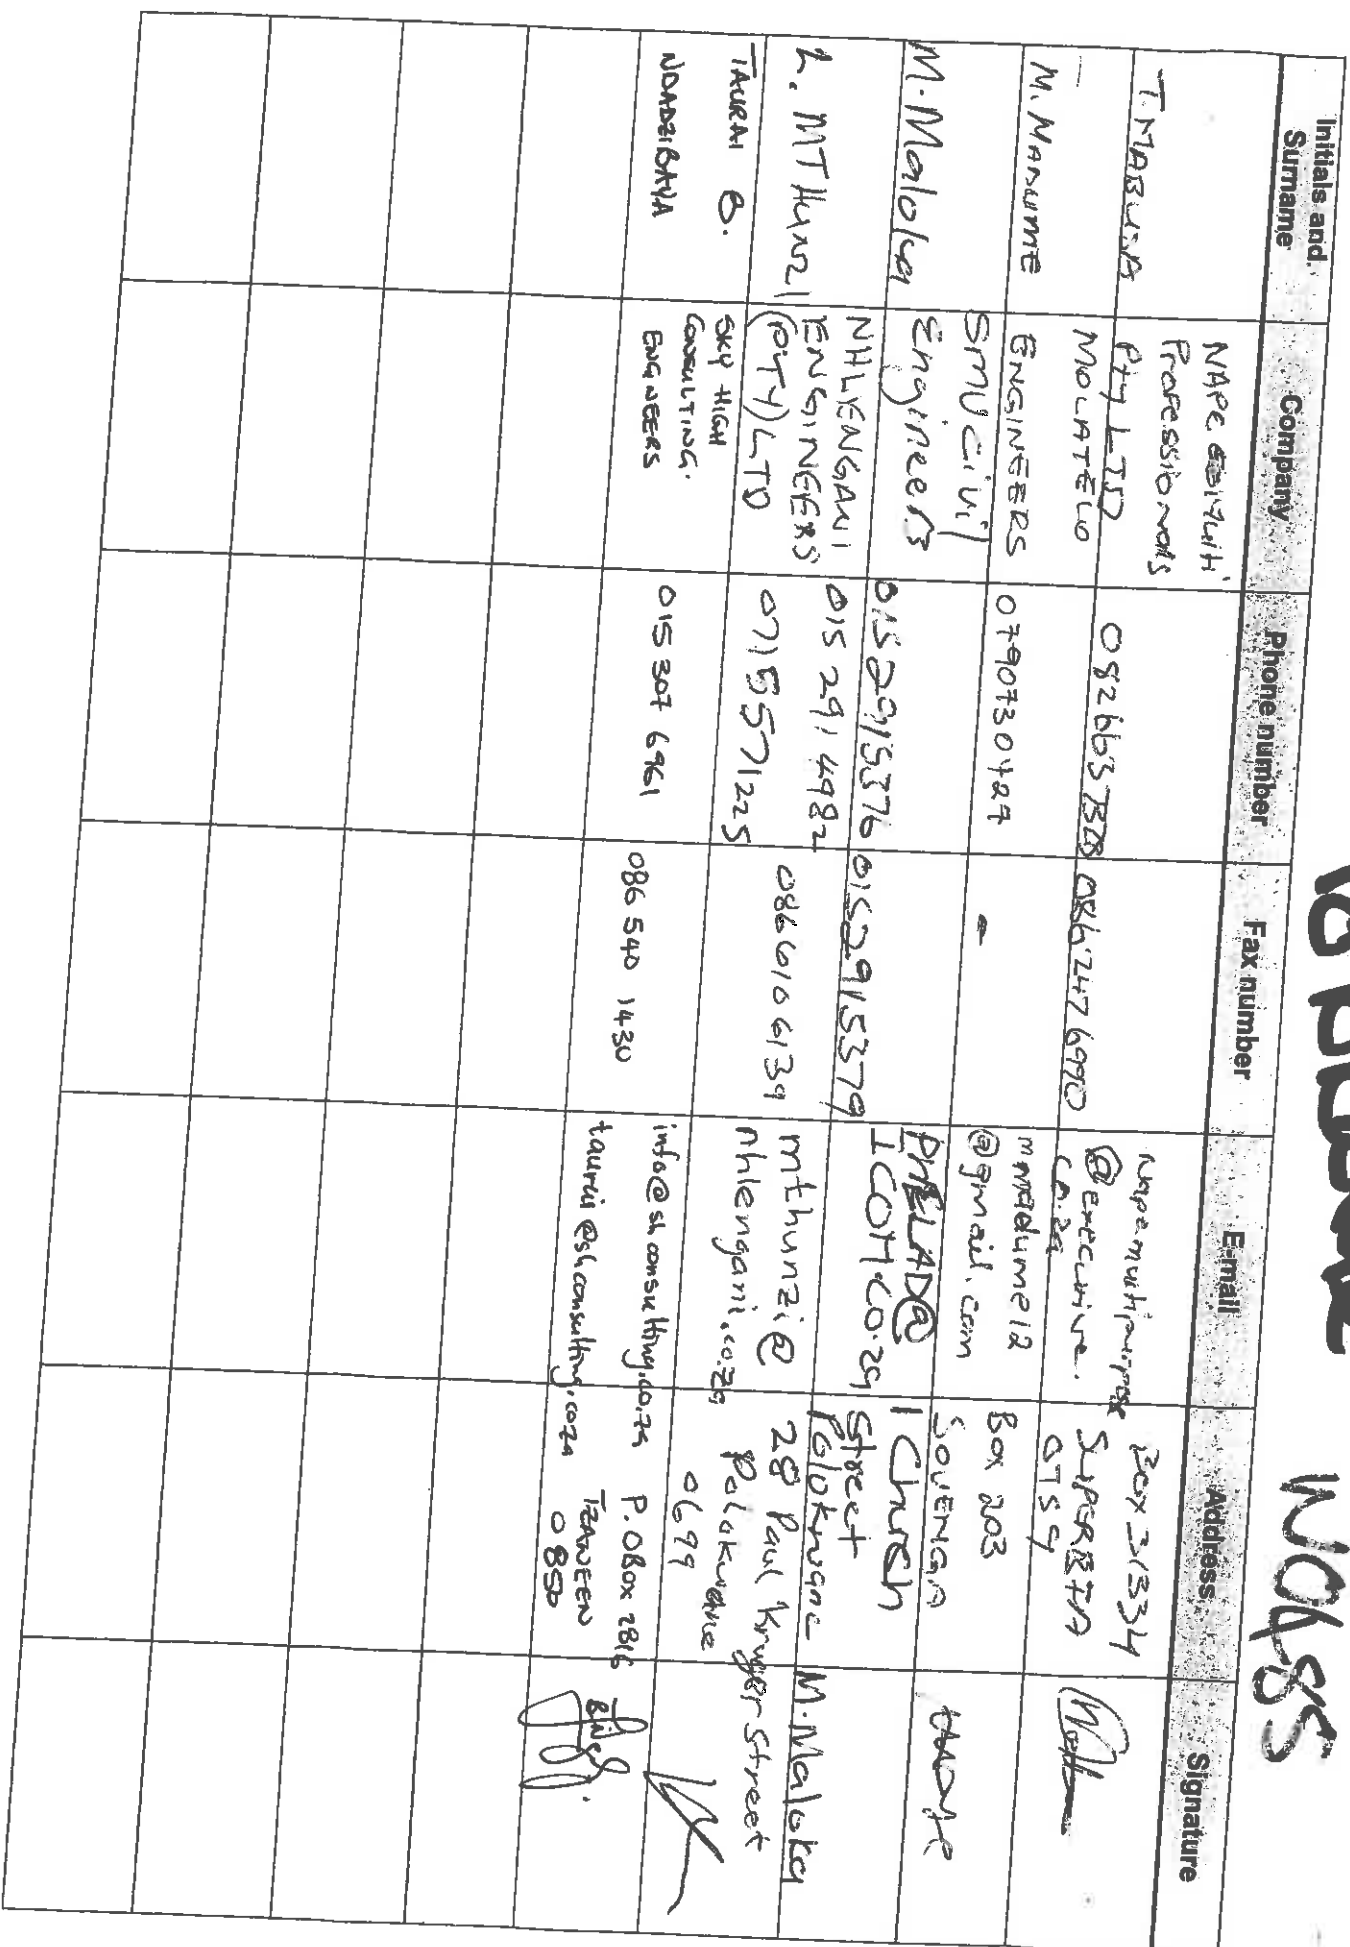 WA85
Initials and Surname
Company
Phone number
Fax number
E-mail
Address
Signature
T. MABUSA
Professionals
Pty LTD
0866247 6990
Box 31334
SUPERBIA
0759
M. MAMUME
MOLATELO
ENGINEERS
0790730427
-
@gmail.com
Box 203
SOVENGA
M. Maloka
SMV Civil
Engineers
0152915376
0152915379
PHELAD@
ICOM.CO.ZA
1 Church
Street
Polokwane
M. Maloka
L. MTHUNZI
NHLENGANI
ENGINEERS
(PTY) LTD
015 291 4982
0715571225
0866106139
mthunzi@
nhlengani.co.za
28 Paul Kruger street
Polokwane
0699
TAURAI B.
NDADZIBAYA
SKY HIGH
CONSULTING
ENGINEERS
015 307 6961
086 540 1430
info@shconsulting.co.za
taurai@shconsulting.co.za
P.O Box 2816
TZANEEN
0850